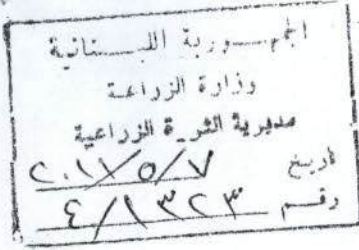 الجمهورية اللبنانية
وزارة الزراعة
مديرية الثروة الزراعية
تاريخ ٢٠١٧/٥/٧
رقم ٤/١٣٢٣